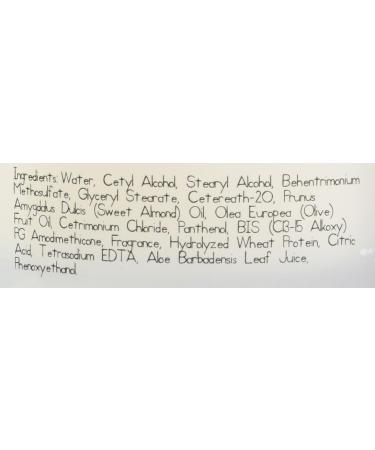 Ingredients: Water, Cetyl Alcohol, Stearyl Alcohol, Behentrimonium
Methosulfate, Glyceryl Stearate, Cetereath-20, Prunus
Amygdalus Dulcis (Sweet Almond) Oil, Olea Europea (Olive)
Fruit Oil, Cetrimonium Chloride, Panthenol, BIS (C13-15 Alkoxy)
PG Amodimethicone, Fragrance, Hydrolyzed Wheat Protein, Citric
Acid, Tetrasodium EDTA, Aloe Barbadensis Leaf Juice,
Phenoxyethanol